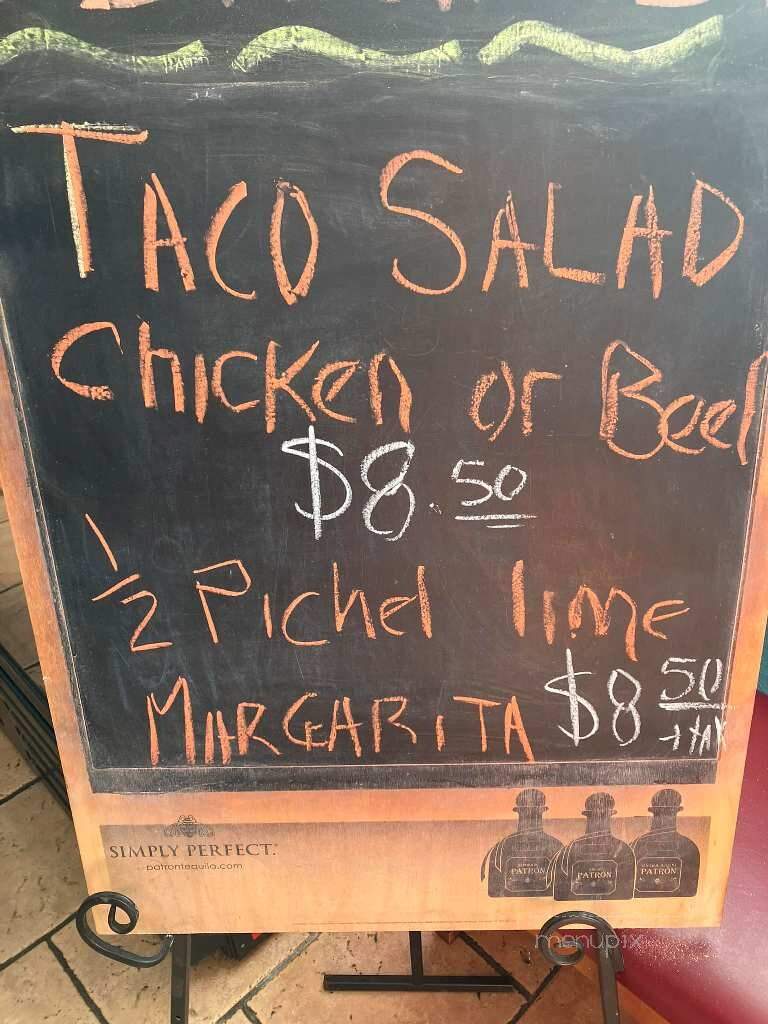 TACO SALAD
Chicken or Beef
$8.50
1/2 Pichel lime
MARGARITA $8 50
+ TAX
SIMPLY PERFECT.
patrontequila.com
PATRÓN PATRÓN PATRÓN
menupix